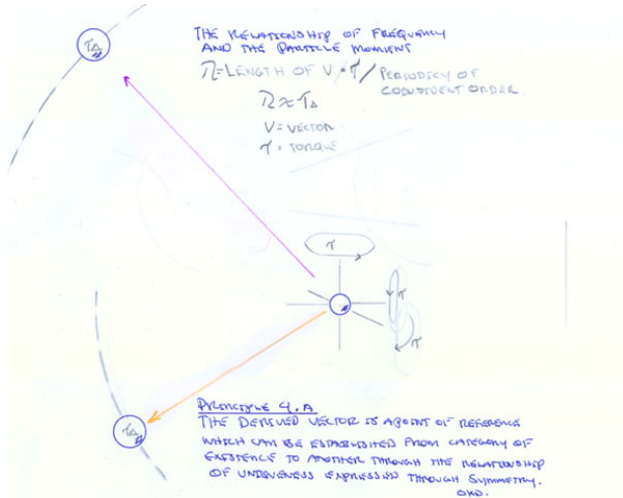 THE RELATIONSHIP OF FREQUENCY
AND THE PARTICLE MOMENT
= LENGTH OF V • τ / PERIODICY OF
ORDER
V = VECTOR
τ = TORQUE
τ
τ
τ
PRINCIPLE 4.A
THE DERIVED VECTOR IS A POINT OF REFERENCE
WHICH CAN BE ESTABLISHED FROM CATEGORY OF
EXISTENCE TO ANOTHER THROUGH THE RELATIONSHIP
OF UNIQUENESS EXPRESSION THROUGH SYMMETRY.